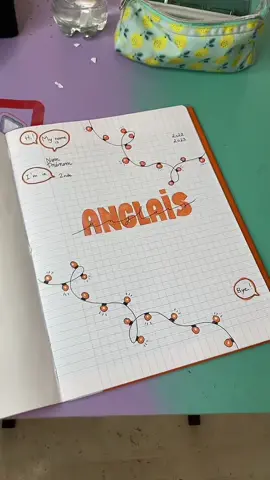 Hi!
My name is
Nom
Prénom
I'm in 2nde
2022
2023
ANGLAIS
Bye!